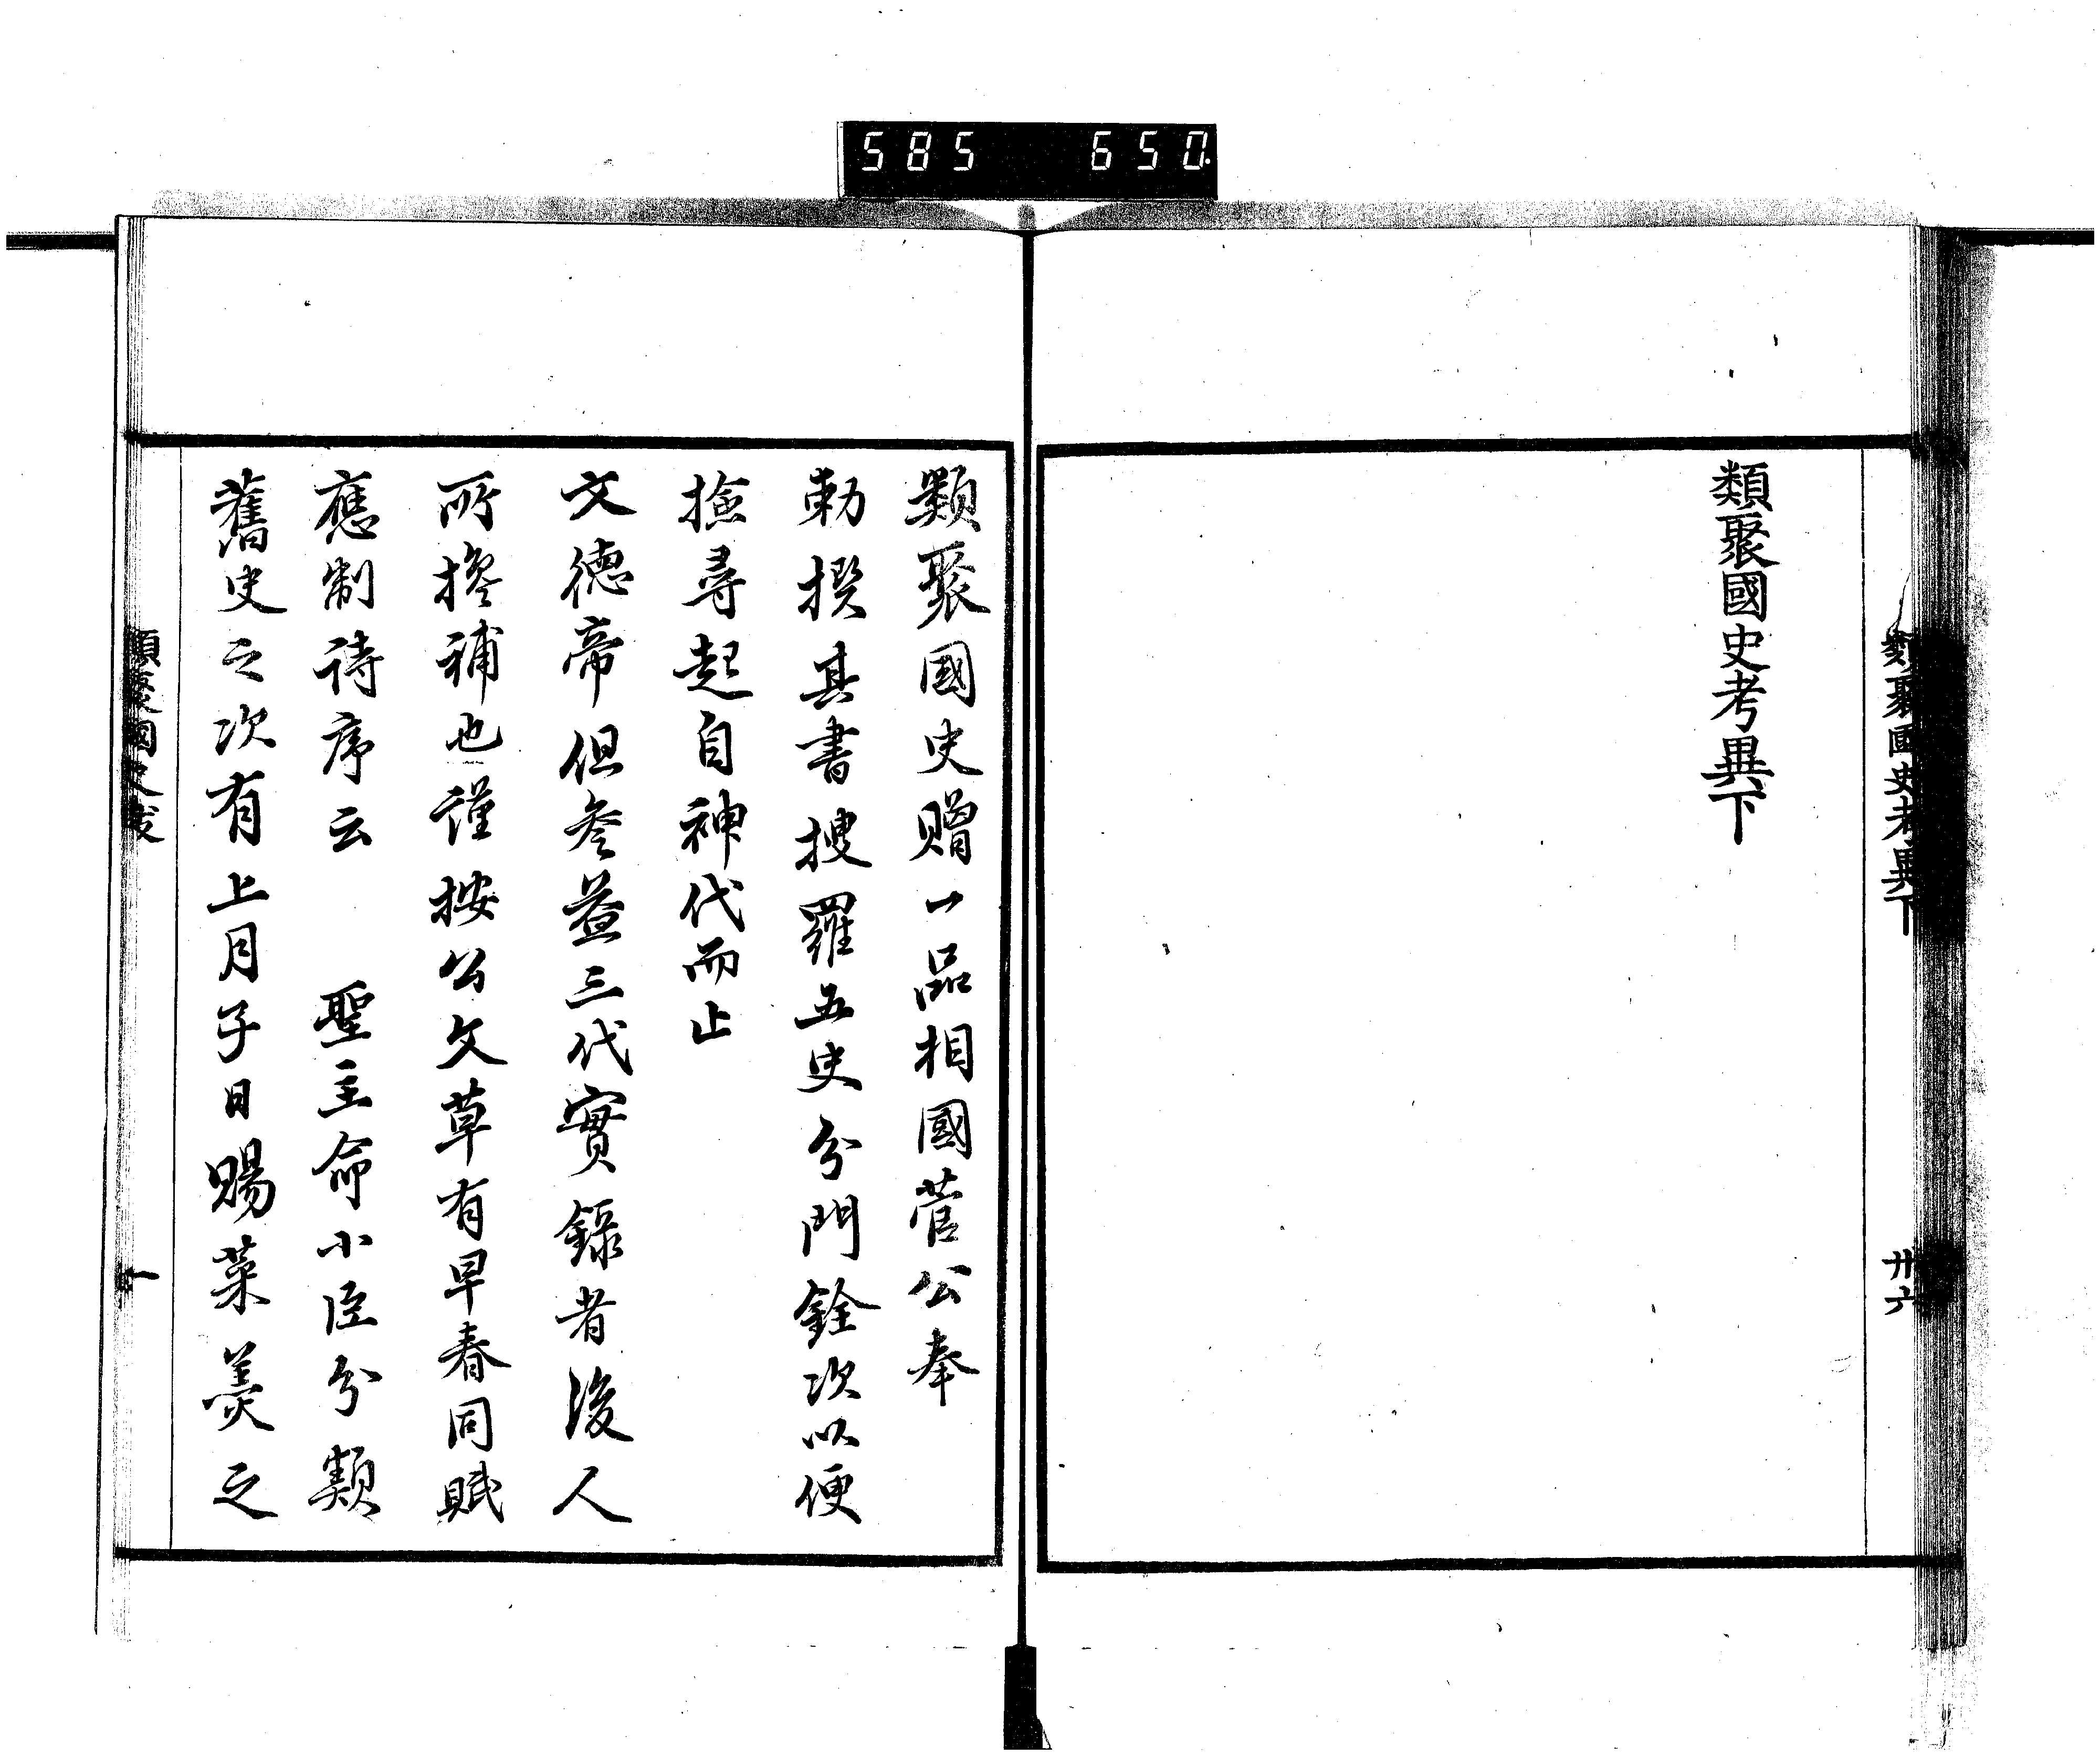 585 650.
類聚國史考異下
卅六
類聚國史考異下
類聚國史贈一品相國菅公奉
勅撰其書搜羅五史分門銓次以便
撿尋起自神代而止
文德帝但叅益三代實錄者後人
所攙補也謹按公文草有早春同賦
應制詩序云　聖主命小臣分類
舊史之次有上月子日賜菜羹之
類聚國史跋
一